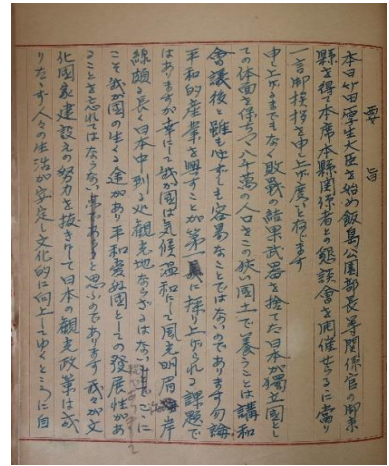 要旨
本日竹田厚生大臣を始め飯島公園部長等関係官の御来
縣を得て本席本縣関係者との懇談会を開催せらるに當り
一言御挨拶を申し上げ度いと存じます
申し上げるまでもなく敗戰の結果武器を捨てた日本が獨立国とし
ての体面を保ちつつ八千萬の人口をこの狹い国土で養うことは講和
會議後と雖も必ずしも容易なことではないのであります勿論
平和的産業を興すことが第一に採り上げられる課題で
はありますが幸にして我が国は気候温和にして風光明眉海岸
線頗る長く日本中到る処観光地ならざるはない ここに
こそ我が国の生くる途があり平和愛好国としての発展性があ
ることを忘れてはならないと思ふのであります 我々が文
化国家建設えの努力を抜きにして日本の観光政策は成
りたゝず人々の生活が安定し文化的に向上してゆくところに自